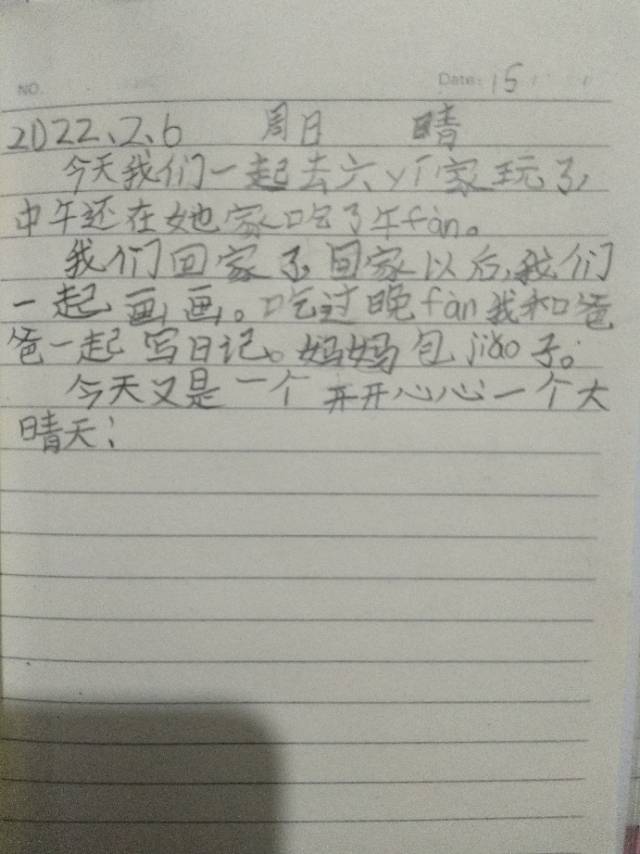 NO.
Date: 15
2022、2、6 周日 晴
今天我们一起去六yī家玩了,
中午还在她家吃了午fàn。
我们回家了回家以后,我们
一起画画。吃过晚fàn我和爸
爸一起写日记。妈妈包jiǎo子。
今天又是一个开开心心一个大
晴天!